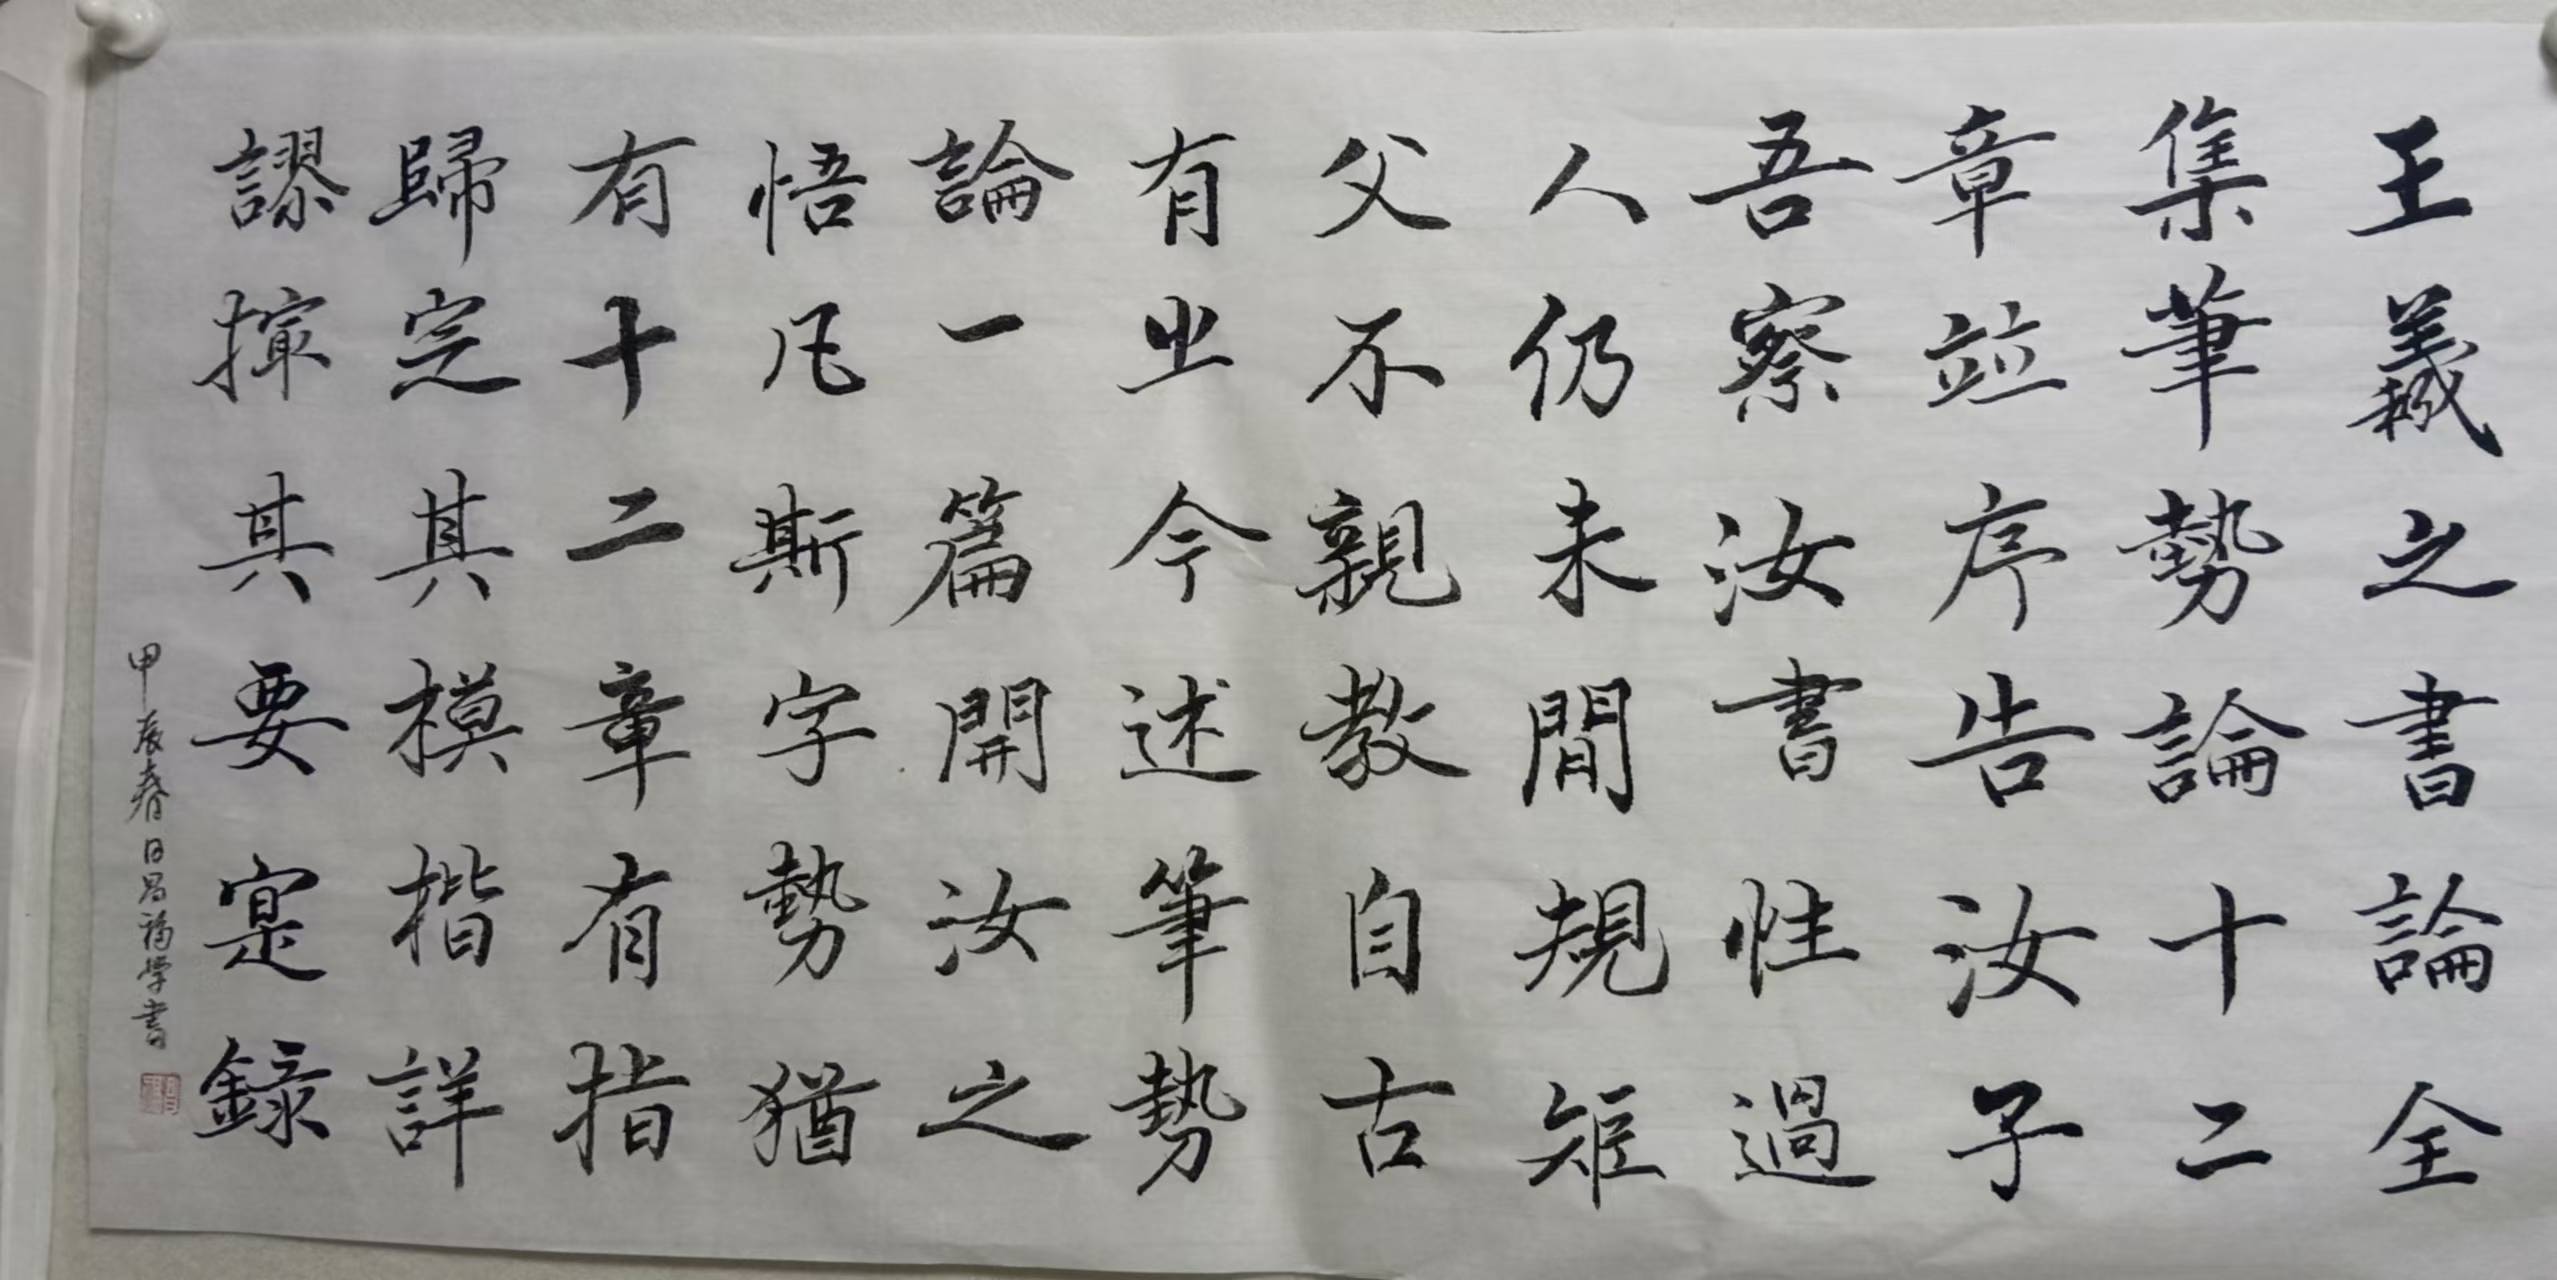 王羲之書論全
集筆勢論十二
章竝序告汝子
吾察汝書性過
人仍未閒規矩
父不親教自古
有㞢今述筆勢
論一篇開汝之
悟凡斯字勢猶
有十二章有指
歸定其模楷詳
謬撮其要寔錄
甲辰春日昌福學書